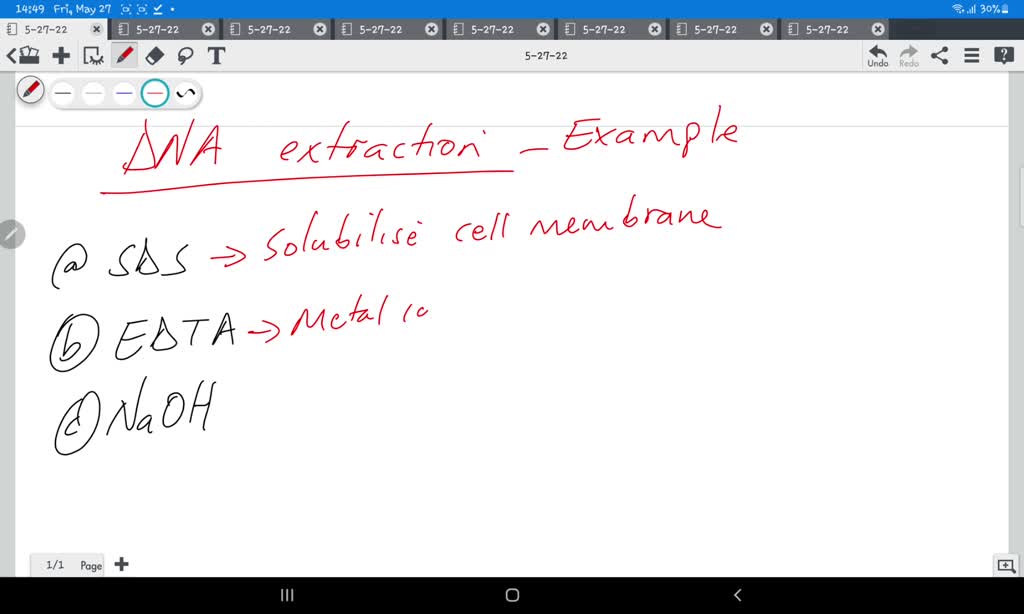 14:49 Fri, May 27 30%
5-27-22 5-27-22 5-27-22 5-27-22 5-27-22 5-27-22 5-27-22 5-27-22
T 5-27-22 Undo Redo
DNA extraction - Example
(a) SDS → Solubilise cell membrane
(b) EDTA → Metal
(c) NaOH
1/1 Page